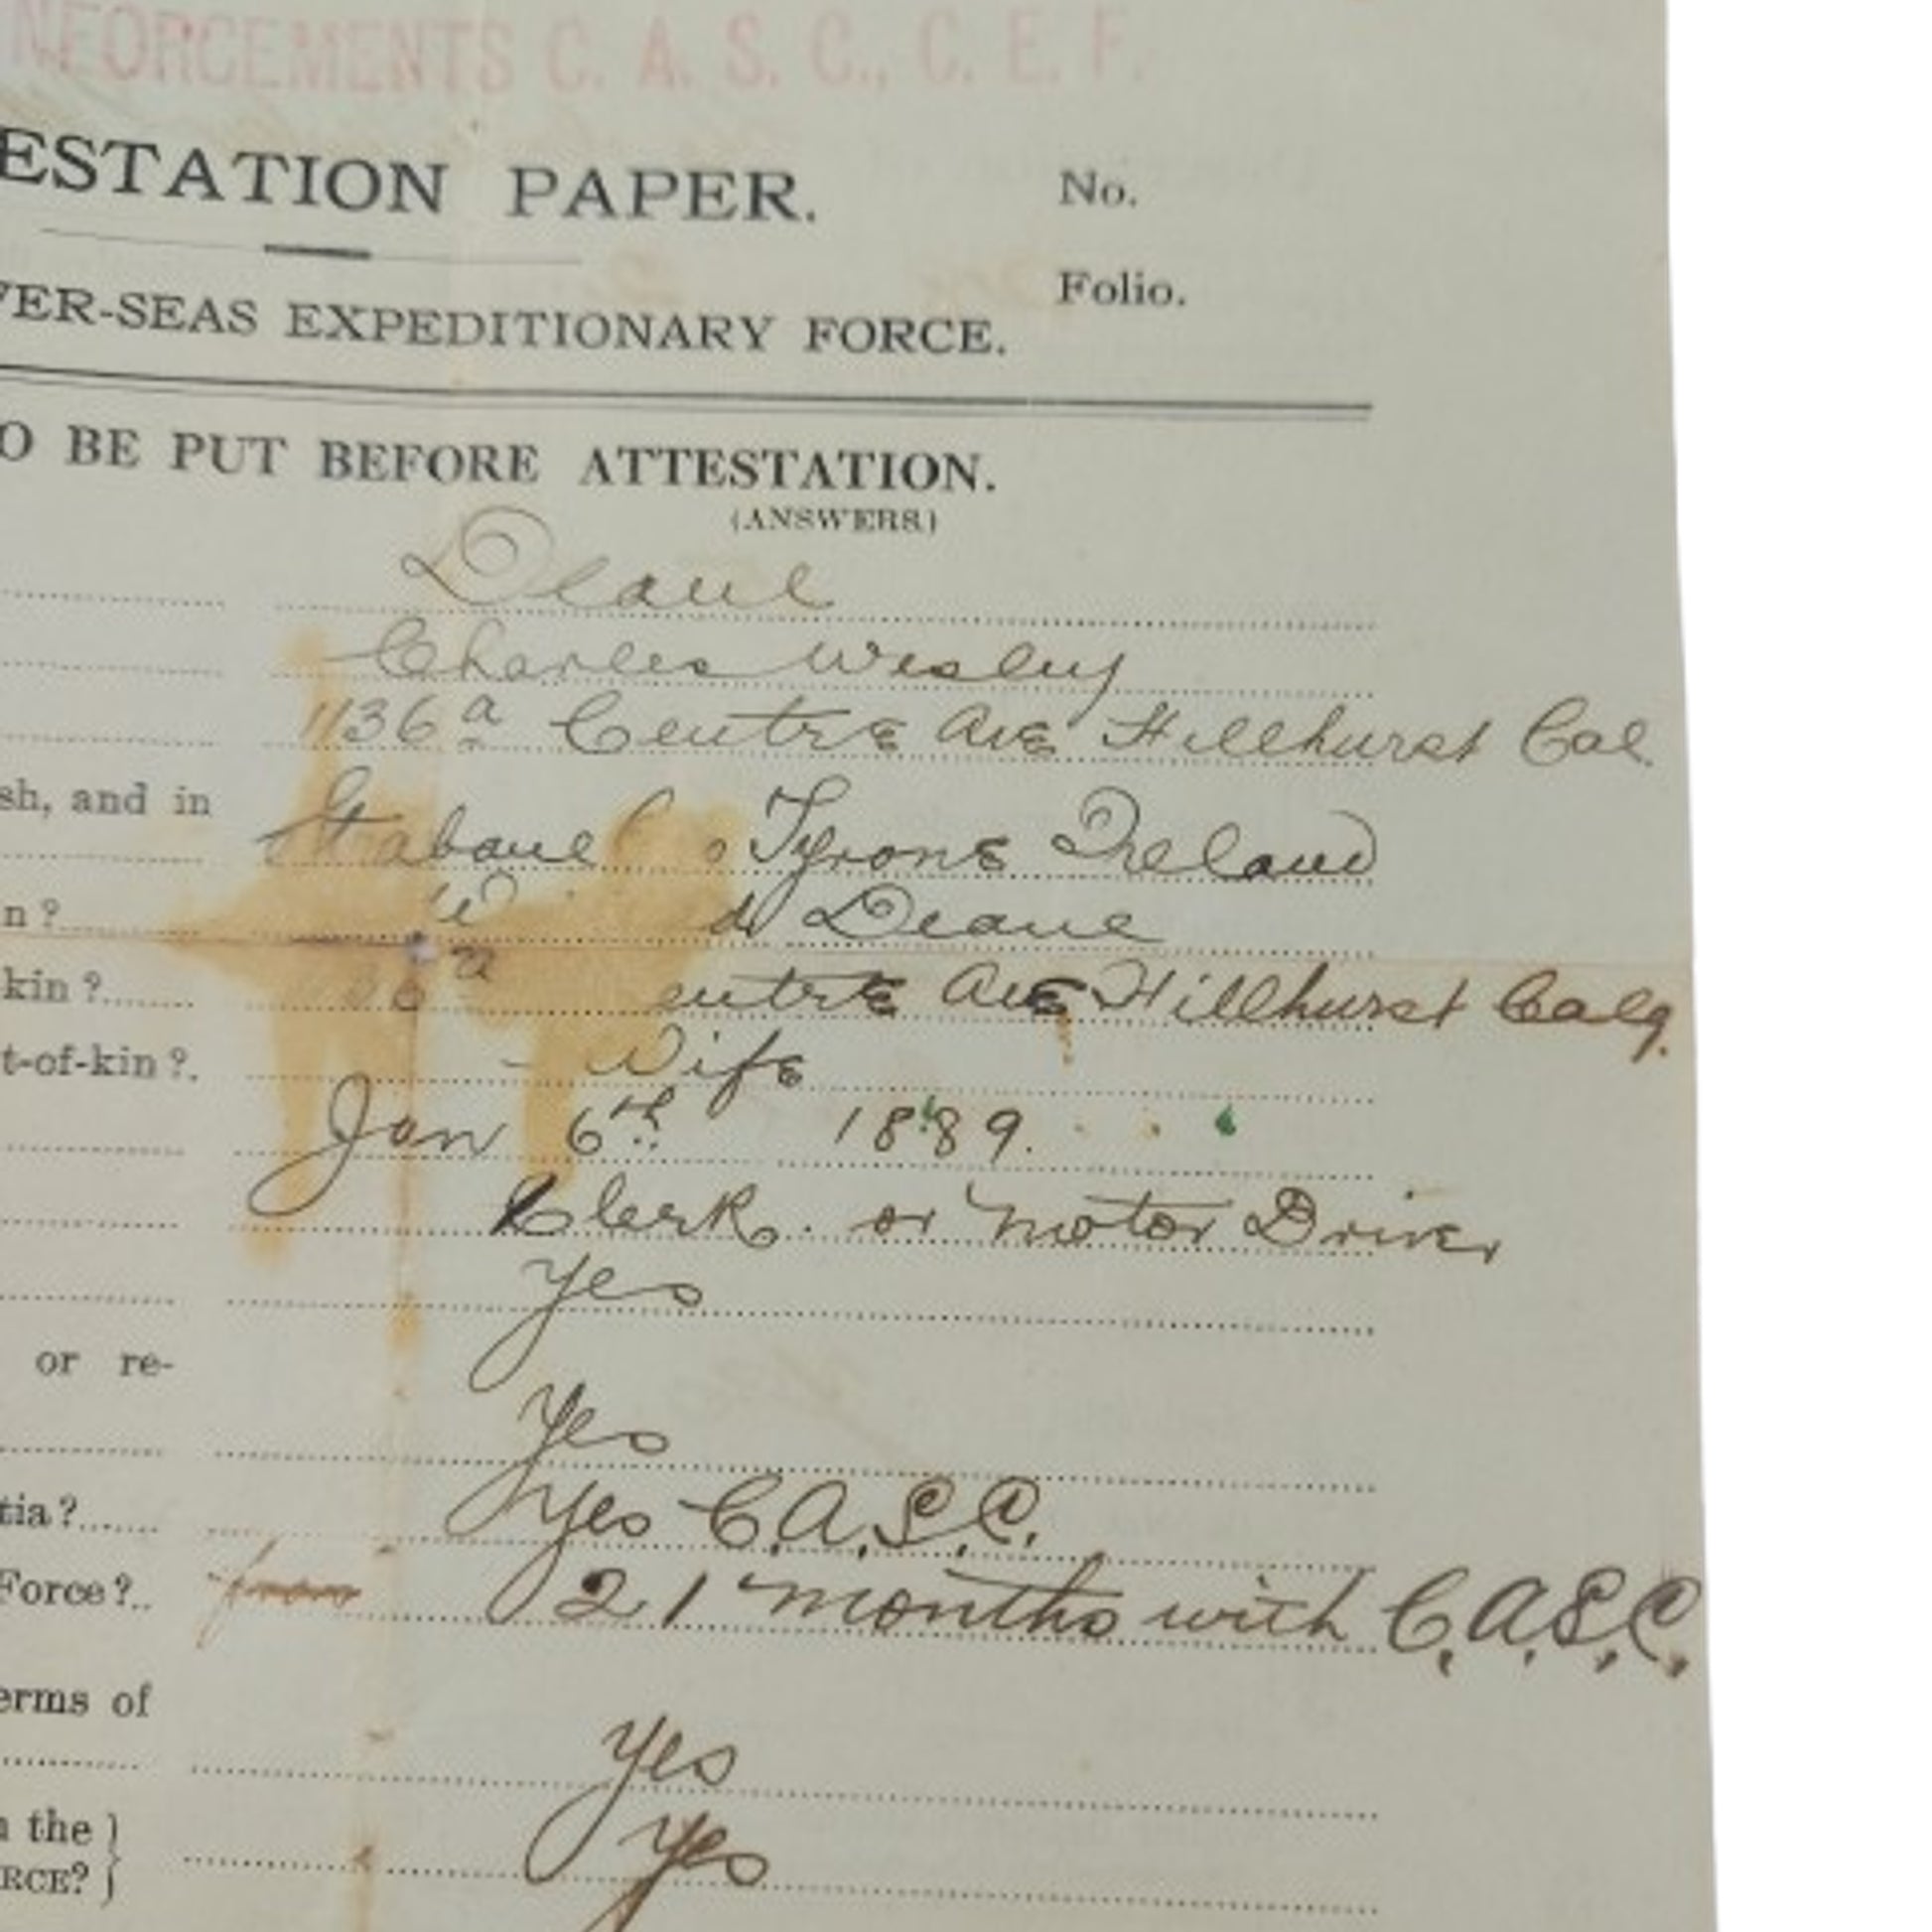 NFORCEMENTS C. A. S. C., C. E. F.
ESTATION PAPER.
No.
Folio.
ER-SEAS EXPEDITIONARY FORCE.
O BE PUT BEFORE ATTESTATION.
(ANSWERS)
Deane
Charles Wesley
1136a Centre Ave Hillhurst Cal.
sh, and in
Tyrone Ireland
n? Deane
kin? entre Ave Hillhurst Calg.
t-of-kin? Wife
Jan 6th 1889.
Clerk. or Motor Driver
Yes
or re-
Yes
tia? Yes C.A.S.C.
Force? from 21 months with C.A.S.C.
erms of
Yes
the }
RCE? } Yes